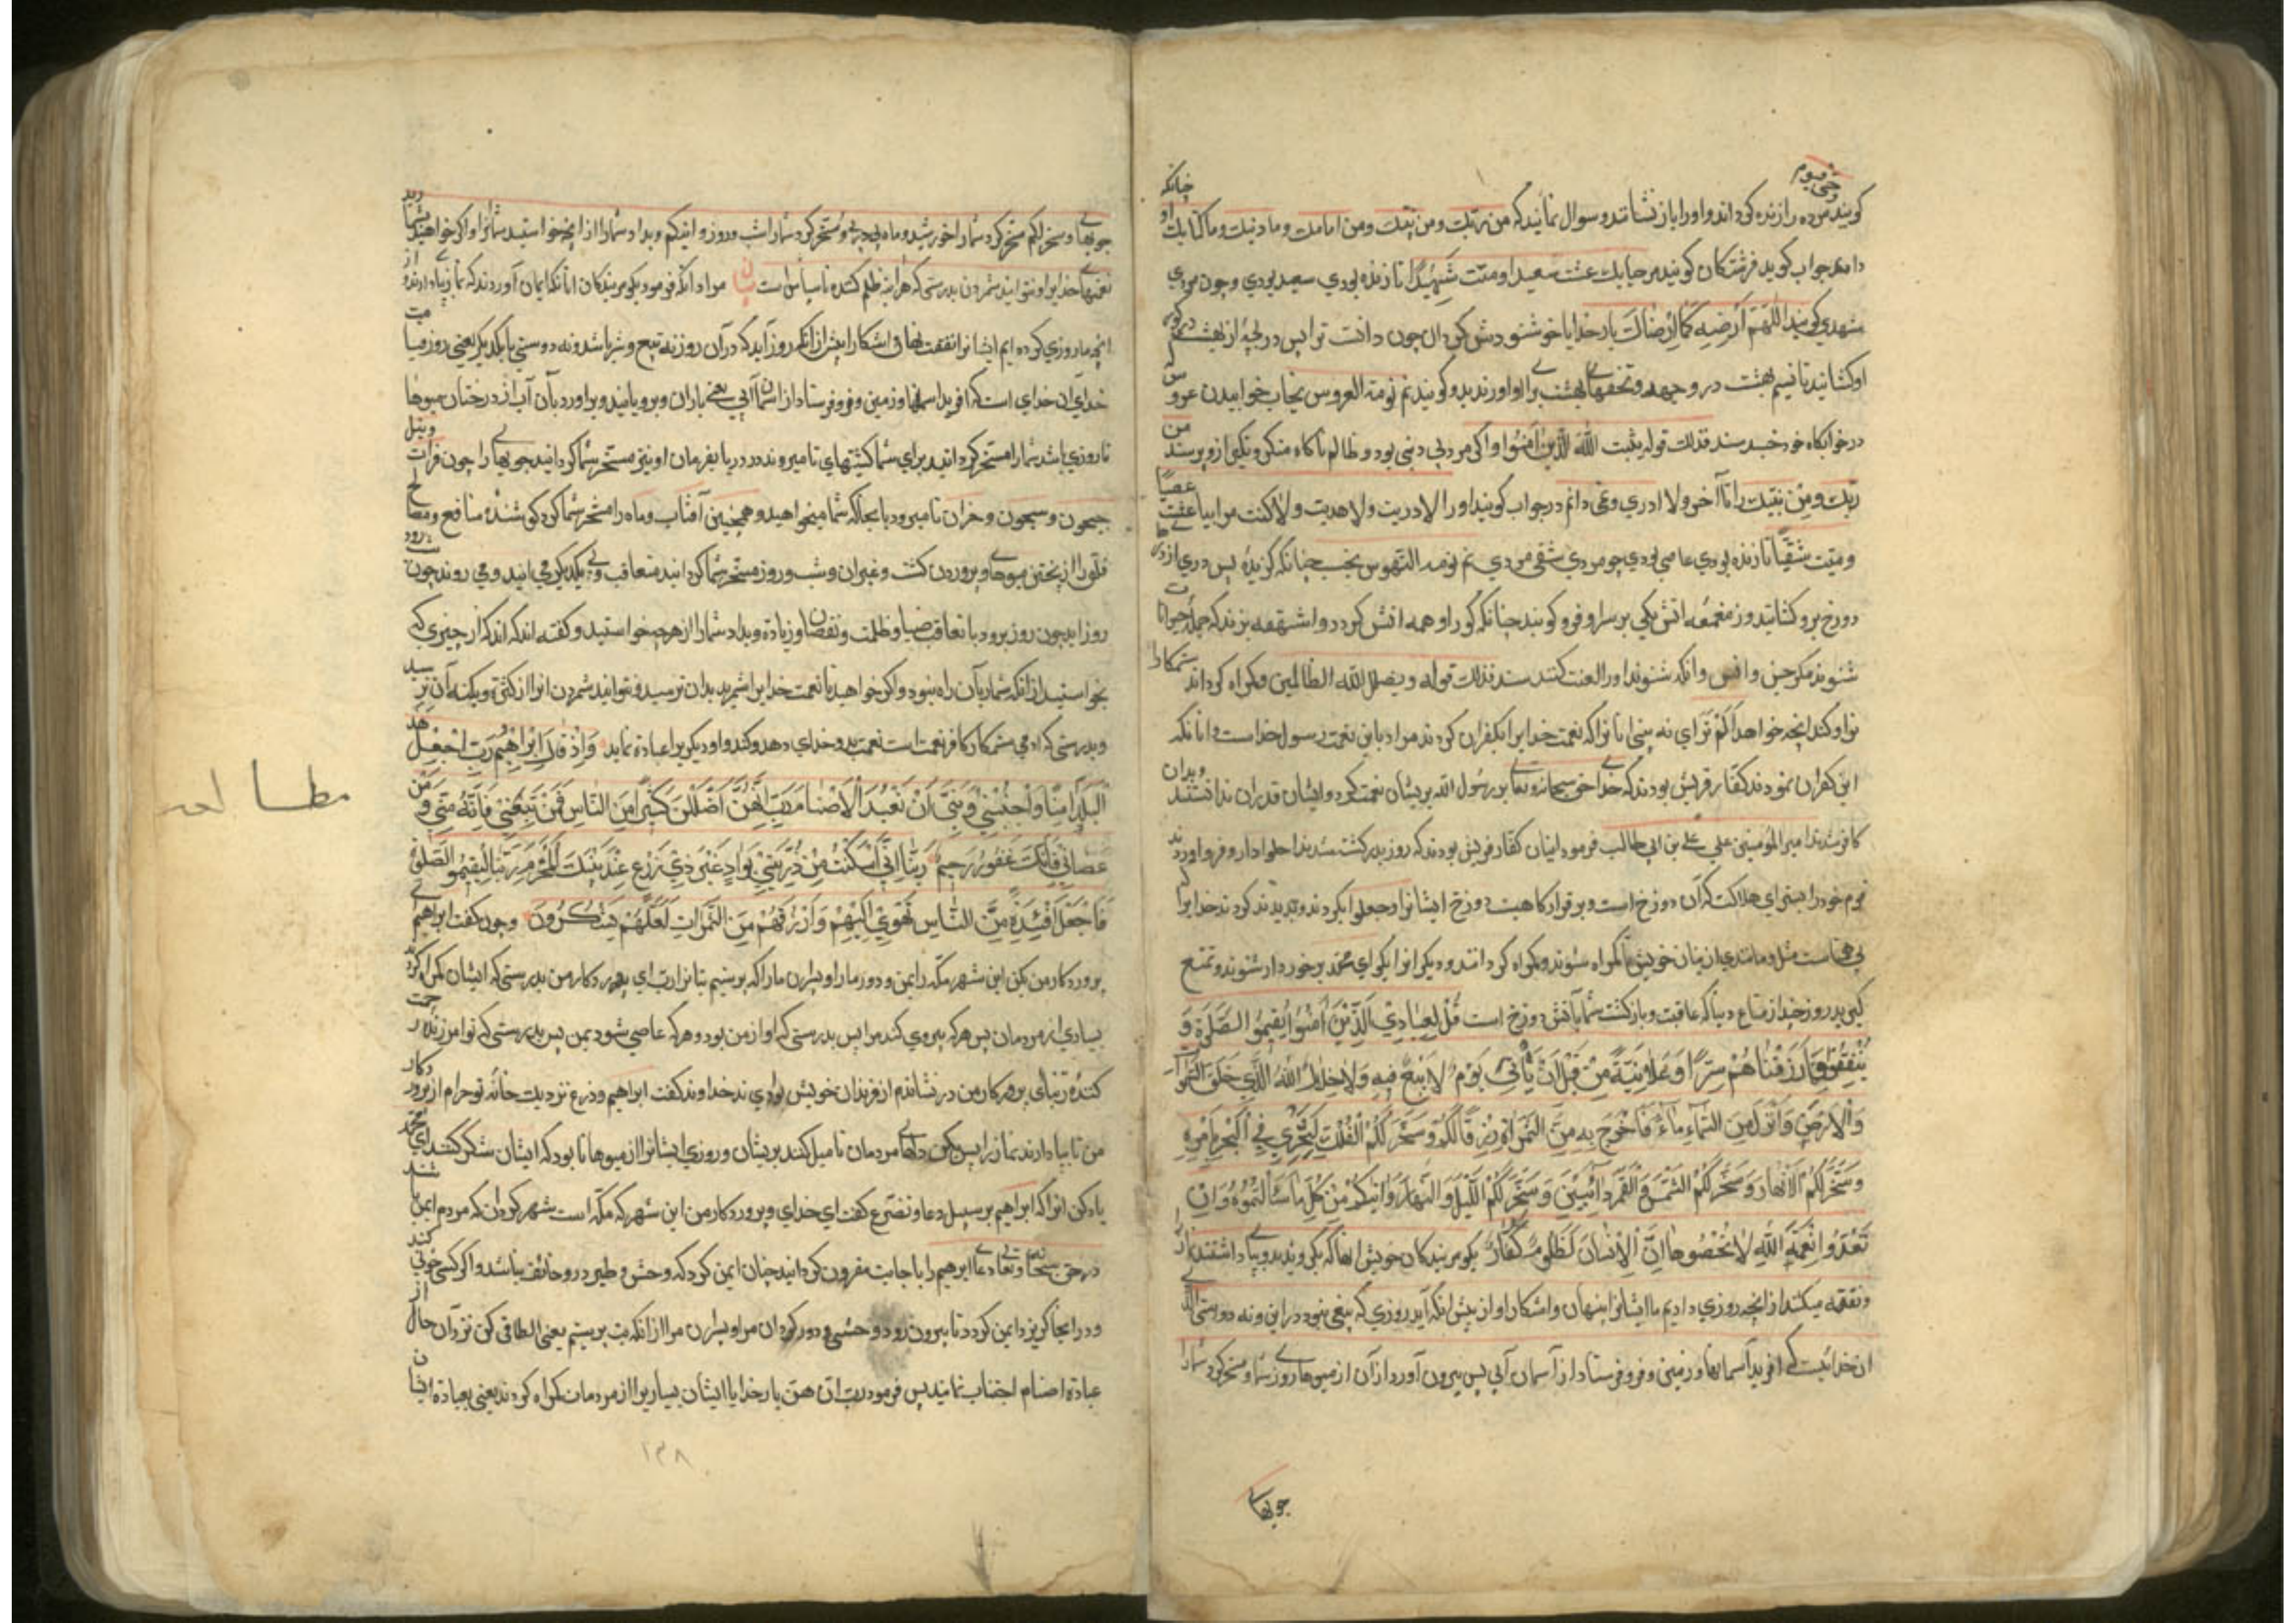 حی قیوم
کویند مرده را زنده کرداند و او را باز نشانند و سوال نمانید که من ربّک و من نبّیک و من امامک و ما دینک و ما کتابک چنانکه او
دامد جواب کوید فرشتکان کویند مرحبا بک عشت سعیدا و متّ شَهِیْدًا تا زنده بودی سعید بودی و چون مردی
شهیدی کویند اَللّهُمَّ اَرْضِه کَمَا اِرْضَاکَ بار خدایا خوشنودش کردان چون دانت ترا پس دریچهٔ از بهشت
او کشانید تا نسیم بهشت در و جهد و تحفهای بهشت برای او اورند بدو کویند نم نومة العروس بخاب خوابیدن عروس
در خوابکاه خود خبد سند فذلک قوله یثبت اللّهَ الَّذِینَ اٰمَنُوا و اکر مرد بی دینی بود و ظالم ناکاه منکر و نکیر ازو پرسند من
ربّک و مِنْ نبیّک لا ادری و نمی دانم در جواب کویند او را لا دریت و لا هدیت و لا کنت مرابیا عشت عصیًا
و متّ شقیًّا تا زنده بودی عاصی بودی چو مردی شقی مردی نم نومة النهوس بخسب چنانکه کزیدهٔ پس دری از
دوزخ برو کشانید و ز مقمعهٔ اتش یکی بر سر او فرو کوبند چنانکه کور او همه اتش کردد و او شهقه بزند که جمله حیوانات
شنوند مکر جن و انس و انکه شنوند او را لعنت کنند فذلک قوله و یضل اللّه الظالمین و کمراه کرداند ستمکارا
نرا و کند انچه خواهد اَلَمْ تَرَ ای نه بینی انانرا که نعمت خدایرا بکفران کردند مراد باین نعمت رسول خداست و انانکه
این کفران نمودند کفّار قریش بودند که خدای حق سبحانه و تعالی بر رسول اللّه بریشان نعمت کرد و ایشان قدر ان ندانستند و بدان
کافر شدند امیرالمؤمنین علی علیه بن ابی طالب فرمود اینان کفّار قریش بودند که روز بدر کشته شدند احلوا دار و فرو اوردند
قوم خود را بسرای هلاکت که آن دوزخ است و بر قرارکاهست دوزخ ایشانرا و جعلوا بکردند و تدبیر کردند خدایرا که
بی همتاست مثل و مانندی از بتان خویش تا کمراه شوند و کمراه کردانند و دیکر انرا بکو ای محمّد برخوردار شوند و تمتع
کیرید روز چند از متاع دنیا که عاقبت و بازکشت شما بآتش دوزخ است قُلْ لِعِبَادِیَ الَّذِیْنَ اٰمَنُوا یُقِیمُوا الصَّلٰوةَ وَ
یُنْفِقُوا مِمَّا رَزَقْنَاهُمْ سِرًّا وَعَلَانِیَةً مِنْ قَبْلِ اَنْ یَأْتِیَ یَوْمٌ لَا بَیْعٌ فِیهِ وَلَا خِلَالٌ اَللّٰهُ الَّذِی خَلَقَ السَّمٰوَاتِ
وَالْاَرْضَ وَاَنْزَلَ مِنَ السَّمَاءِ مَاءً فَاَخْرَجَ بِهِ مِنَ الثَّمَرَاتِ رِزْقًا لَکُمْ وَسَخَّرَ لَکُمُ الْفُلْکَ لِتَجْرِیَ فِی الْبَحْرِ بِاَمْرِهِ
وَسَخَّرَ لَکُمُ الْاَنْهَارَ وَسَخَّرَ لَکُمُ الشَّمْسَ وَالْقَمَرَ دَائِبَیْنِ وَسَخَّرَ لَکُمُ اللَّیْلَ وَالنَّهَارَ وَاٰتَیکُمْ مِنْ کُلِّ مَا سَاَلْتُمُوهُ وَاِنْ
تَعُدُّوا نِعْمَةَ اللّٰهِ لَا تُحْصُوهَا اِنَّ الْاِنْسَانَ لَظَلُومٌ کَفَّارٌ بکو مر بندکان خویش انها که بکرویدند و بپا داشتند نماز را
و نفقه میکنند از انچه روزی دادیم ما ایشانرا پنهان و اشکارا و از پیش انکه آید روزی که بیعی نبود در این و نه دوستی اللّه
ان خدائیست که افرید آسمانها و زمین و فرو فرستاد از آسمان آبی پس بیرون آورد از آن از میوهای روز شما و مسخر کرد شما را
جویهای
جویهای و سخر لکم مسخر کرد شما را خورشید و ماه پی در پی و مسخر کرد شما را شب و روز و اتیکم و بداد شما را از انچه خواستید شما از او و اکر خواهید بشمارید
نعمتهای خدایرا و نتوانید شمردن بدرستی که هراینه ظلم کننده ناسپاس است مراد انکه فرمود بکو مر بندکان انانکه ایمان آوردند که نماز بپا دارند و از
انچه ما روزی کرده ایم ایشانرا نفقه نهان و اشکارا پیش از انکه روز آید که در آن روز نه بیع و شرا باشد و نه دوستی با یکدیکر یعنی روز قیامت
خدای آن خدای است که افرید اسمانها و زمین و فرو فرستاد از اسمان آبی یعنی باران و برویانید و براورد بآن آب از درختان میوها
تا روزی باشد شما را مسخر کردانید برای شما کشتیهای تا میروند در دریا بفرمان او و نیز مسخر شما کردانید جویها را چون فرات و نیل
جیحون و سیحون و خزان تا میرود بانجا که شما میخواهید و همچنین آفتاب و ماه را مسخر شما کرد کوشنده منافع و مصالح
قلوب از پختن میوها و پروردن کشت و غیر ان و شب و روز مسخر شما کردانید متعاقب یکدیکر می ایند و می روند چون شب رود
روز اید چون روز برود با تعاقب ضیا و ظلمت و نقصان و زیاده و بداد شما را از هر چه خواستید و کفته اند که از چیزی که
بخواستید از انکه شما را بآن راه نبود و اکر خواهید تا نعمت خدایرا شمرید بدان نرسید و نتوانید شمردن انرا از کثرت
و بدرستی که ادمی ستمکار کافر نعمت است نعمت بدو خدای دهد و کند او دیکریرا عبادة نماید وَاِذْ قَالَ اِبْرَاهِیْمُ رَبِّ اجْعَلْ هٰذَا
الْبَلَدَ اٰمِنًا وَاجْنُبْنِیْ وَبَنِیَّ اَنْ نَعْبُدَ الْاَصْنَامَ رَبِّ اِنَّهُنَّ اَضْلَلْنَ کَثِیْرًا مِنَ النَّاسِ فَمَنْ تَبِعَنِیْ فَاِنَّهُ مِنِّیْ وَ مَنْ
عَصَانِیْ فَاِنَّکَ غَفُورٌ رَحِیمٌ رَبَّنَا اِنِّیْ اَسْکَنْتُ مِنْ ذُرِّیَّتِیْ بِوَادٍ غَیْرِ ذِیْ زَرْعٍ عِنْدَ بَیْتِکَ الْمُحَرَّمِ رَبَّنَا لِیُقِیمُوا الصَّلٰوةَ
فَاجْعَلْ اَفْئِدَةً مِنَ النَّاسِ تَهْوِیْ اِلَیْهِمْ وَارْزُقْهُمْ مِنَ الثَّمَرَاتِ لَعَلَّهُمْ یَشْکُرُونَ و چون کفت ابراهیم ای
پروردکار من بکن این شهر مکّه را ایمن و دور مار و پسران مارا که پرستیم بتانرا رب ای پروردکار من بدرستی که ایشان کمراه کردند
بسیاری از مردمان پس هر که پیروی کند مرا پس بدرستی که او از من بود و هر که عاصی شود بمن پس بدرستی که تو امرزنده و رحمت
کنندهٔ ربّنا ای پروردکار من درنشاندم از فرزندان خویش بوادی ... و زرع نزدیک خانهٔ تو حرام از پروردکار
من تا بپا دارند نماز را پس بکن دلهای مردمان تا میل کنند بریشان و روزی ایشانرا از میوها تا بود که ایشان شکر کنند ای محمّد
یاد کن انرا که ابراهیم بر سبیل دعا و تضرّع کفت ای خدای و پروردکار من این شهر که مکّه است شهر کردان که مردم ایمن باشند
در حق سبحانه و تعالی دعای ابرهیم را باجابت مقرون کردانید چنان ایمن کرد که وحش و طیر درو خائف نباشد و اکر کسی خونی کند
و در انجا کریزد ایمن کردد تا بیرون رود و دور کردان مرا و پسران مرا از انکه بت پرستیم یعنی الطافی کن نزد آن حال از
عبادة اصنام اجتناب نمایند پس فرمود رب ان هن بار خدایا ایشان بسیاریرا از مردمان کمراه کردند یعنی بعبادة ایشان
۱۳۸